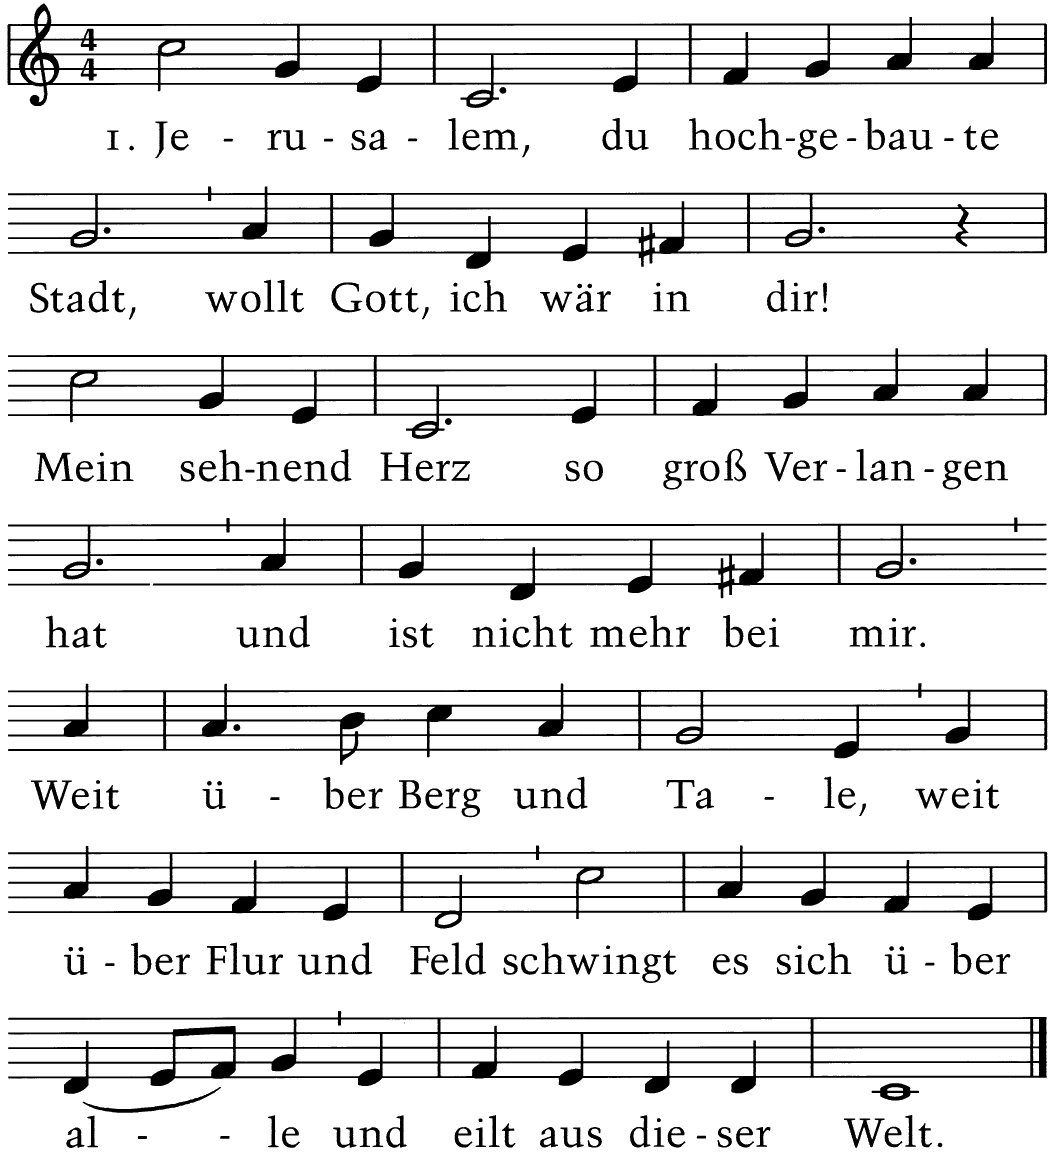 4
4
1. Je - ru - sa - lem, du hoch-ge-bau-te
Stadt, wollt Gott, ich wär in dir!
Mein seh-nend Herz so groß Ver-lan-gen
hat und ist nicht mehr bei mir.
Weit ü - ber Berg und Ta - le, weit
ü - ber Flur und Feld schwingt es sich ü - ber
al - - le und eilt aus die-ser Welt.